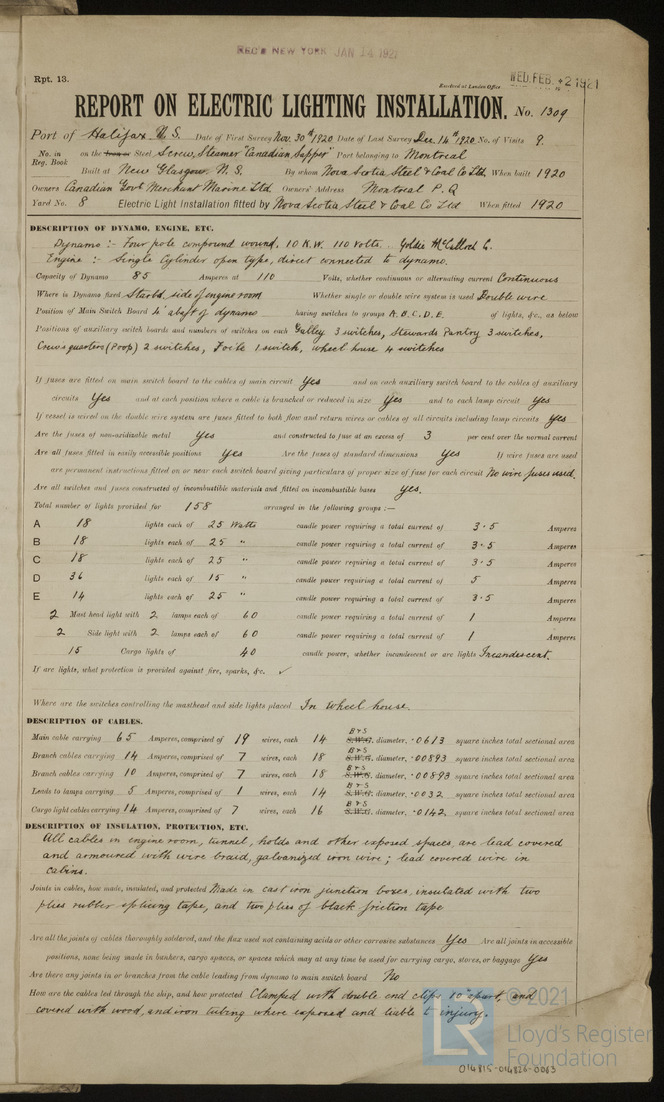 REC'D NEW YORK JAN 14 1921
Rpt. 13.
Received at London Office WED. FEB. 2 1921
REPORT ON ELECTRIC LIGHTING INSTALLATION. No. 1309
Port of Halifax N.S. Date of First Survey Nov. 30th 1920 Date of Last Survey Dec. 14th 1920 No. of Visits 9.
No. in Reg. Book on the Iron or Steel Screw, Steamer "Canadian Sapper" Port belonging to Montreal
Built at New Glasgow. N.S. By whom Nova Scotia Steel & Coal Co Ltd. When built 1920
Owners Canadian Govt Merchant Marine Ltd. Owners' Address Montreal P.Q
Yard No. 8 Electric Light Installation fitted by Nova Scotia Steel & Coal Co Ltd When fitted 1920
DESCRIPTION OF DYNAMO, ENGINE, ETC.
Dynamo :- Four pole compound wound. 10 K.W. 110 Volts. Goldie McCulloch C.
Engine :- Single Cylinder open type, direct connected to dynamo.
Capacity of Dynamo 85 Amperes at 110 Volts, whether continuous or alternating current Continuous
Where is Dynamo fixed Starbd. side of engine room Whether single or double wire system is used Double wire
Position of Main Switch Board 4' abaft of dynamo having switches to groups A. B. C. D. E. of lights, &c., as below
Positions of auxiliary switch boards and numbers of switches on each Galley 3 switches, Stewards Pantry 3 switches,
Crew's quarters (Poop) 2 switches, Focle 1 switch, wheel house 4 switches
If fuses are fitted on main switch board to the cables of main circuit Yes and on each auxiliary switch board to the cables of auxiliary
circuits Yes and at each position where a cable is branched or reduced in size Yes and to each lamp circuit Yes
If vessel is wired on the double wire system are fuses fitted to both flow and return wires or cables of all circuits including lamp circuits Yes
Are the fuses of non-oxidizable metal Yes and constructed to fuse at an excess of 3 per cent over the normal current
Are all fuses fitted in easily accessible positions Yes Are the fuses of standard dimensions Yes If wire fuses are used
are permanent instructions fitted on or near each switch board giving particulars of proper size of fuse for each circuit No wire fuses used.
Are all switches and fuses constructed of incombustible materials and fitted on incombustible bases Yes.
Total number of lights provided for 158 arranged in the following groups :—
A 18 lights each of 25 Watts candle power requiring a total current of 3.5 Amperes
B 18 lights each of 25 " candle power requiring a total current of 3.5 Amperes
C 18 lights each of 25 " candle power requiring a total current of 3.5 Amperes
D 36 lights each of 15 " candle power requiring a total current of 5 Amperes
E 14 lights each of 25 " candle power requiring a total current of 3.5 Amperes
2 Mast head light with 2 lamps each of 60 candle power requiring a total current of 1 Amperes
2 Side light with 2 lamps each of 60 candle power requiring a total current of 1 Amperes
15 Cargo lights of 40 candle power, whether incandescent or arc lights Incandescent.
If arc lights, what protection is provided against fire, sparks, &c. ✓
Where are the switches controlling the masthead and side lights placed In Wheel house.
DESCRIPTION OF CABLES.
Main cable carrying 65 Amperes, comprised of 19 wires, each 14 B & S S.W.G. diameter, .0613 square inches total sectional area
Branch cables carrying 14 Amperes, comprised of 7 wires, each 18 B & S S.W.G. diameter, .00893 square inches total sectional area
Branch cables carrying 10 Amperes, comprised of 7 wires, each 18 B & S S.W.G. diameter, .00893 square inches total sectional area
Leads to lamps carrying 5 Amperes, comprised of 1 wires, each 14 B & S S.W.G. diameter, .0032 square inches total sectional area
Cargo light cables carrying 14 Amperes, comprised of 7 wires, each 16 B & S S.W.G. diameter, .0142 square inches total sectional area
DESCRIPTION OF INSULATION, PROTECTION, ETC.
All cables in engine room, tunnel, holds and other exposed spaces are lead covered
and armoured with wire braid, galvanized iron wire; lead covered wire in
cabins.
Joints in cables, how made, insulated, and protected Made in cast iron junction boxes, insulated with two
plies rubber splicing tape, and two plies of black friction tape
Are all the joints of cables thoroughly soldered, and the flux used not containing acids or other corrosive substances Yes Are all joints in accessible
positions, none being made in bunkers, cargo spaces, or spaces which may at any time be used for carrying cargo, stores, or baggage Yes
Are there any joints in or branches from the cable leading from dynamo to main switch board No
How are the cables led through the ship, and how protected Clamped with double end clips 10" apart, and
covered with wood, and iron tubing where exposed and liable to injury.
© 2021
Lloyd's Register
Foundation
014815-014826-0063